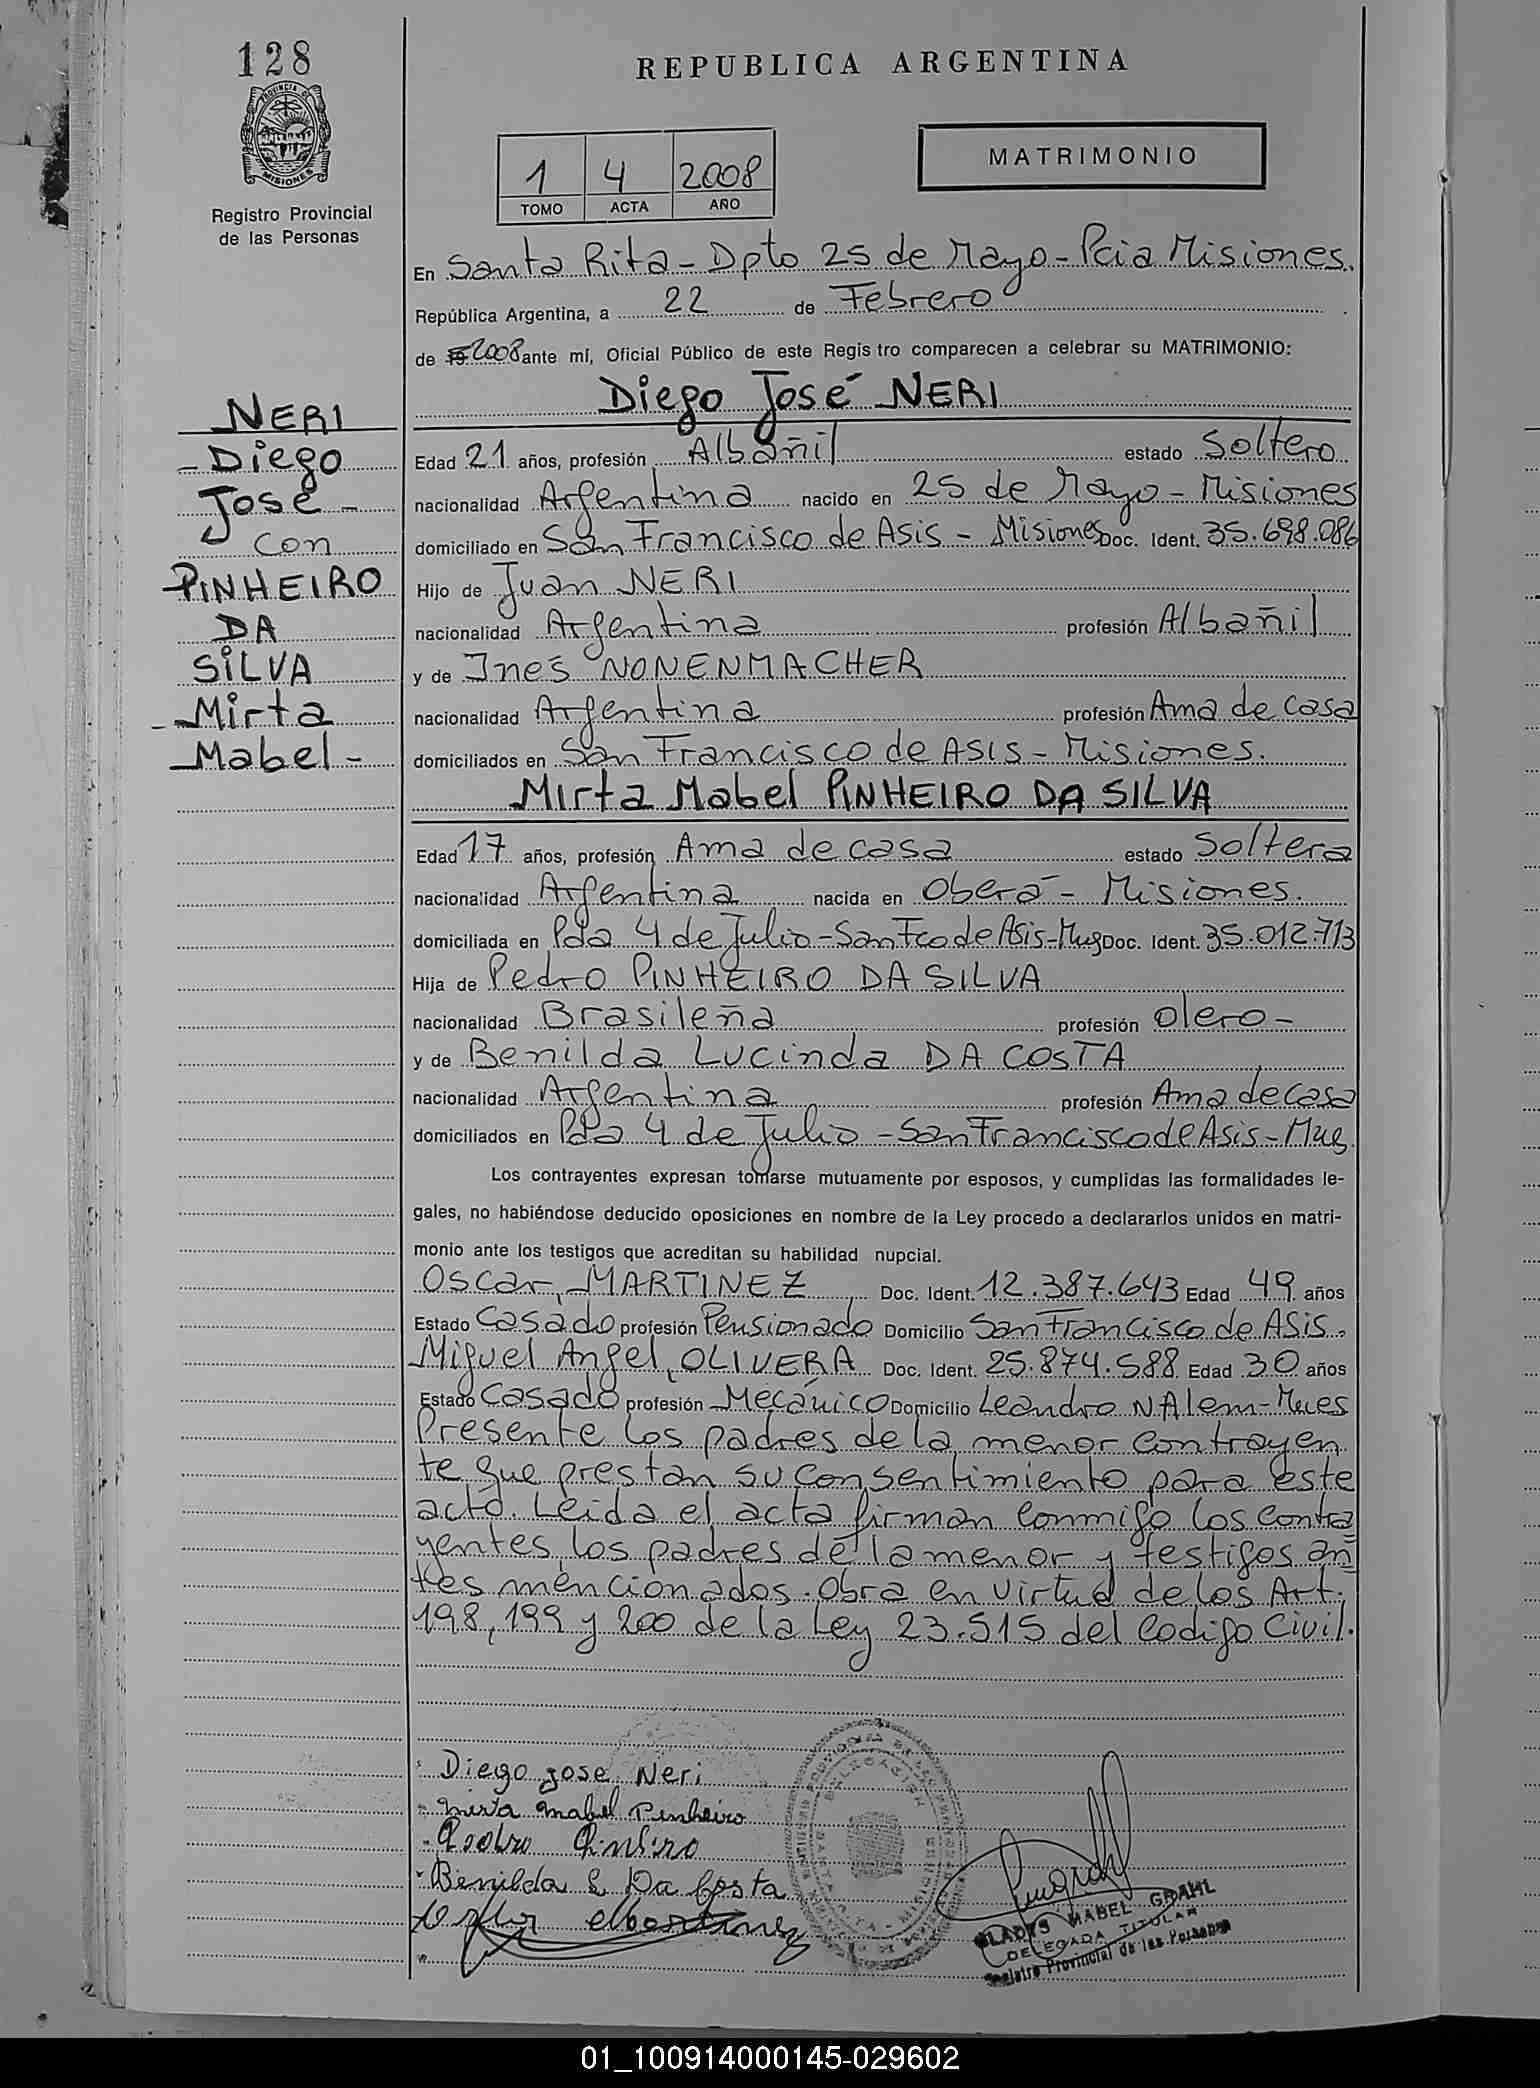 128
PROVINCIA DE
MISIONES
Registro Provincial
de las Personas
REPUBLICA ARGENTINA
MATRIMONIO
1 4 2008
TOMO ACTA AÑO
En Santa Rita - Dpto 25 de Mayo - Pcia Misiones.
República Argentina, a 22 de Febrero
de 19 2008 ante mí, Oficial Público de este Regis tro comparecen a celebrar su MATRIMONIO:
Diego José NERI
NERI
- Diego
José -
con
PINHEIRO
DA
SILVA
- Mirta
Mabel -
Edad 21 años, profesión Albañil estado Soltero
nacionalidad Argentina nacido en 25 de Mayo - Misiones
domiciliado en San Francisco de Asis - Misiones Doc. Ident. 35.698.086
Hijo de Juan NERI
nacionalidad Argentina profesión Albañil
y de Ines NONENMACHER
nacionalidad Argentina profesión Ama de casa
domiciliados en San Francisco de Asis - Misiones.
Mirta Mabel PINHEIRO DA SILVA
Edad 17 años, profesión Ama de casa estado Soltera
nacionalidad Argentina nacida en Oberá - Misiones.
domiciliada en Pda 4 de Julio - San Fco de Asis - Mnes Doc. Ident. 35.012.713
Hija de Pedro PINHEIRO DA SILVA
nacionalidad Brasileña profesión Olero -
y de Benilda Lucinda DA COSTA
nacionalidad Argentina profesión Ama de casa
domiciliados en Pda 4 de Julio - San Francisco de Asis - Mnes.
Los contrayentes expresan tomarse mutuamente por esposos, y cumplidas las formalidades le-
gales, no habiéndose deducido oposiciones en nombre de la Ley procedo a declararlos unidos en matri-
monio ante los testigos que acreditan su habilidad nupcial.
Oscar, MARTINEZ Doc. Ident. 12.387.643 Edad 49 años
Estado Casado profesión Pensionado Domicilio San Francisco de Asis.
Miguel Angel, OLIVERA Doc. Ident. 25.874.588 Edad 30 años
Estado Casado profesión Mecánico Domicilio Leandro N Alem - Mnes
Presente los padres de la menor contrayen
te que prestan su consentimiento para este
acto. Leida el acta firman conmigo los contra
yentes, los padres de la menor y testigos an
tes mencionados. Obra en virtud de los Art.
198, 199 y 200 de la Ley 23.515 del Codigo Civil.
Diego jose Neri
mirta mabel Pinheiro
Benilda L Da Costa
GLADYS MABEL GRAHL
DELEGADA TITULAR
Registro Provincial de las Personas
01_100914000145-029602